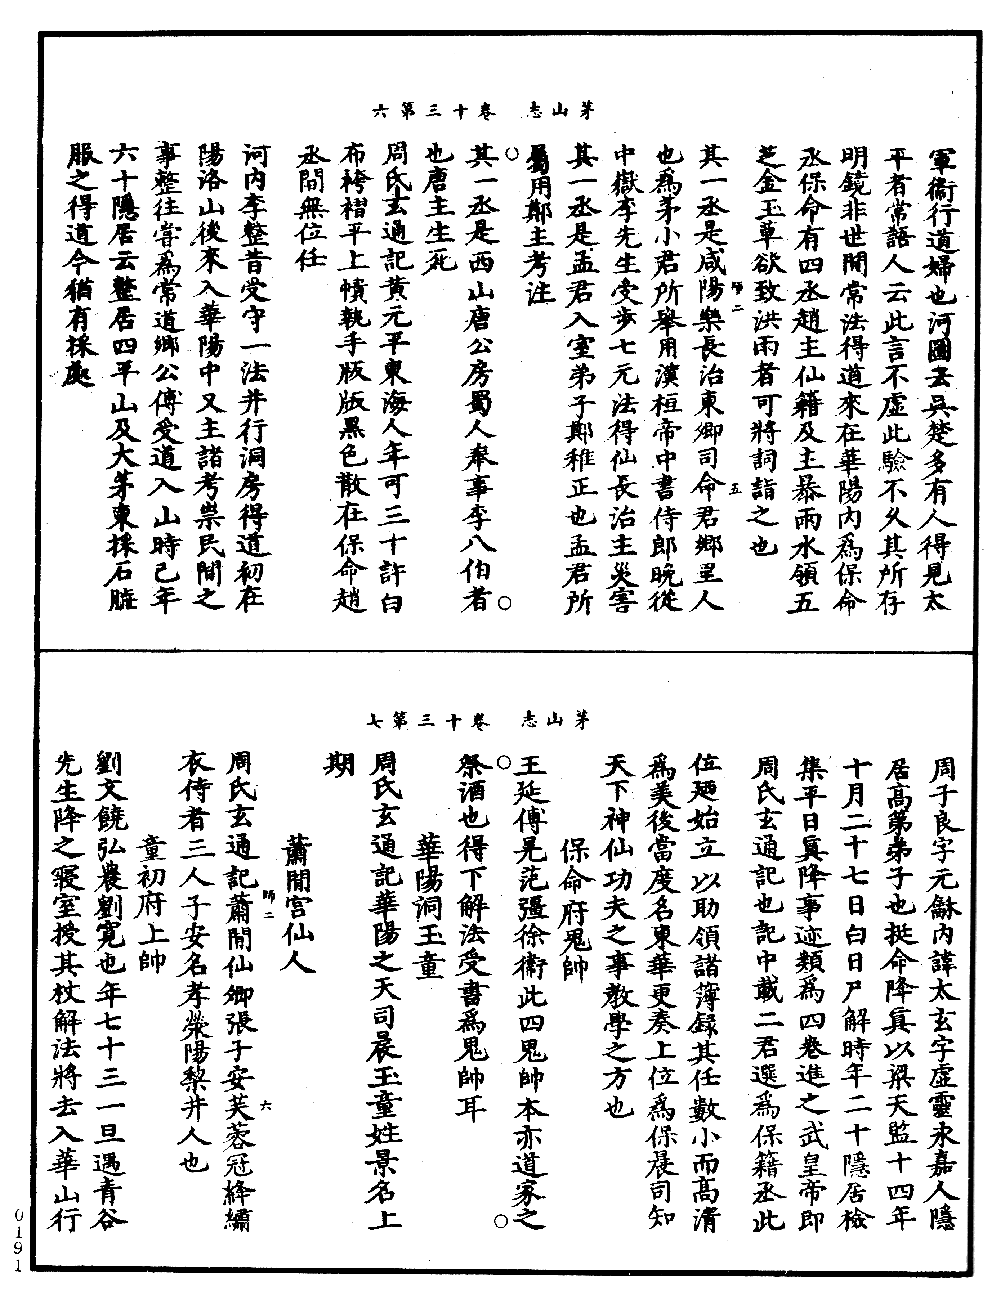 茅山志　卷十三第六
軍衞行道婦也河圖云吳楚多有人得見太
平者常語人云此言不虛此驗不久其所存
明鏡非世間常法得道來在華陽内爲保命
丞保命有四丞趙主仙籍及主暴雨水領五
芝金玉草欲致洪雨者可將詞詣之也
師二　五
其一丞是咸陽樂長治東卿司命君鄉里人
也爲茅小君所舉用漢桓帝中書侍郎晚從
中嶽李先生受步七元法得仙長治主災害
其一丞是孟君入室弟子鄭稚正也孟君所
屬用鄭主考注
其一丞是西山唐公房蜀人奉事李八伯者
也唐主生死
周氏玄通記黄元平東海人年可三十許白
布袴褶平上幘執手版版黑色散在保命趙
丞間無位任
河内李整昔受守一法并行洞房得道初在
陽洛山後來入華陽中又主諸考祟民間之
事整往嘗爲常道鄉公傅受道入山時已年
六十隱居云整居四平山及大茅東採石腦
服之得道今猶有採處
茅山志　卷十三第七
周子良字元龢内諱太玄字虛靈永嘉人隱
居高第弟子也挺命降眞以梁天監十四年
十月二十七日白日尸解時年二十隱居檢
集平日眞降事迹類爲四卷進之武皇帝即
周氏玄通記也記中載二君選爲保籍丞此
位廼始立以助領諸簿録其任數小而高清
爲美後當度名東華更奏上位爲保晨司知
天下神仙功夫之事教學之方也
保命府鬼帥
王延傅晃范彊徐衛此四鬼帥本亦道家之
祭酒也得下解法受書爲鬼帥耳
華陽洞玉童
周氏玄通記華陽之天司晨玉童姓景名上
期
蕭閒宫仙人
師二　六
周氏玄通記蕭閒仙卿張子安芙蓉冠絳繡
衣侍者三人子安名孝滎陽梨井人也
童初府上帥
劉文饒弘農劉寬也年七十三一旦遇青谷
先生降之寢室授其杖解法將去入華山行
0191